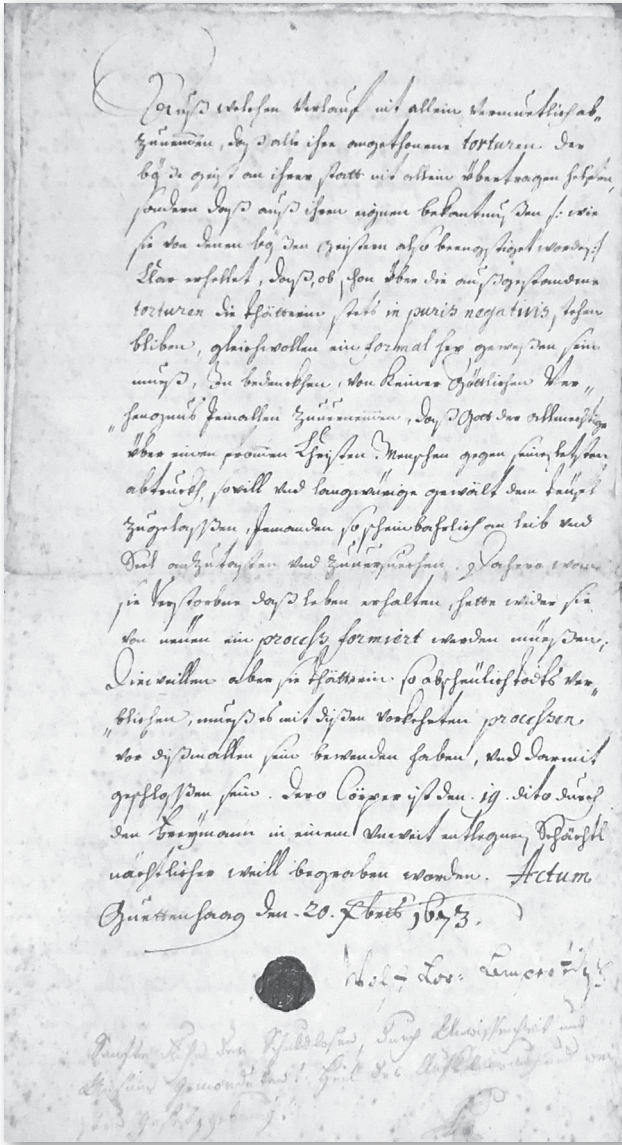 Auß welchen Verlauf nit allein vermuetlich ab-
zunemen, daß alle ihre angethonene torturen der
böße geist an ihrer statt nit allein übertragen helffen,
sondern daß auß ihren eignen bekantnußen /: wie
sie von denen bößen Geistern also beengstiget worden :/
klar erhellet, daß, ob schon über die außgestandene
torturen die thätterin stets in puris negativis stehen
bliben, gleichwollen ein formal hex geweßen sein
mueß, in bedenckhen, von keiner Göttlichen Ver-
hengnus iemallen zuvernemmen, daß Gott der allmechtige
über einen frommen Christen Menschen gegen seines letsten
abtruckh, sovill und langwürige gewält dem teufel
zugelaßßen, jemanden so scheinbahrlich an leib und
Seel anzutasten und zuversuechen. Dahero wan
sie Verstorbne daß leben erhalten, hette wider sie
von neuen ein process formiert werden müeßen,
Dieweillen aber sie thätterin so abscheulich todts ver-
blichen, mueß es mit dißen vorkehrten processen
vor dißmallen sein bewenden haben, und darmit
geschloßen sein. Dero Cörper ist den 19. dito durch
den Freymann in einem unweit entlegnen Schächtl
nächtlicher weill begraben worden. Actum
Guettenhaag den 20. Xbris 1673.
Wolf Lor: Lampertitsch
Sanfte Ruhe der Schuldlosen, durch Unwissenheit und
Gemordeten! Heil der Aufklärung und